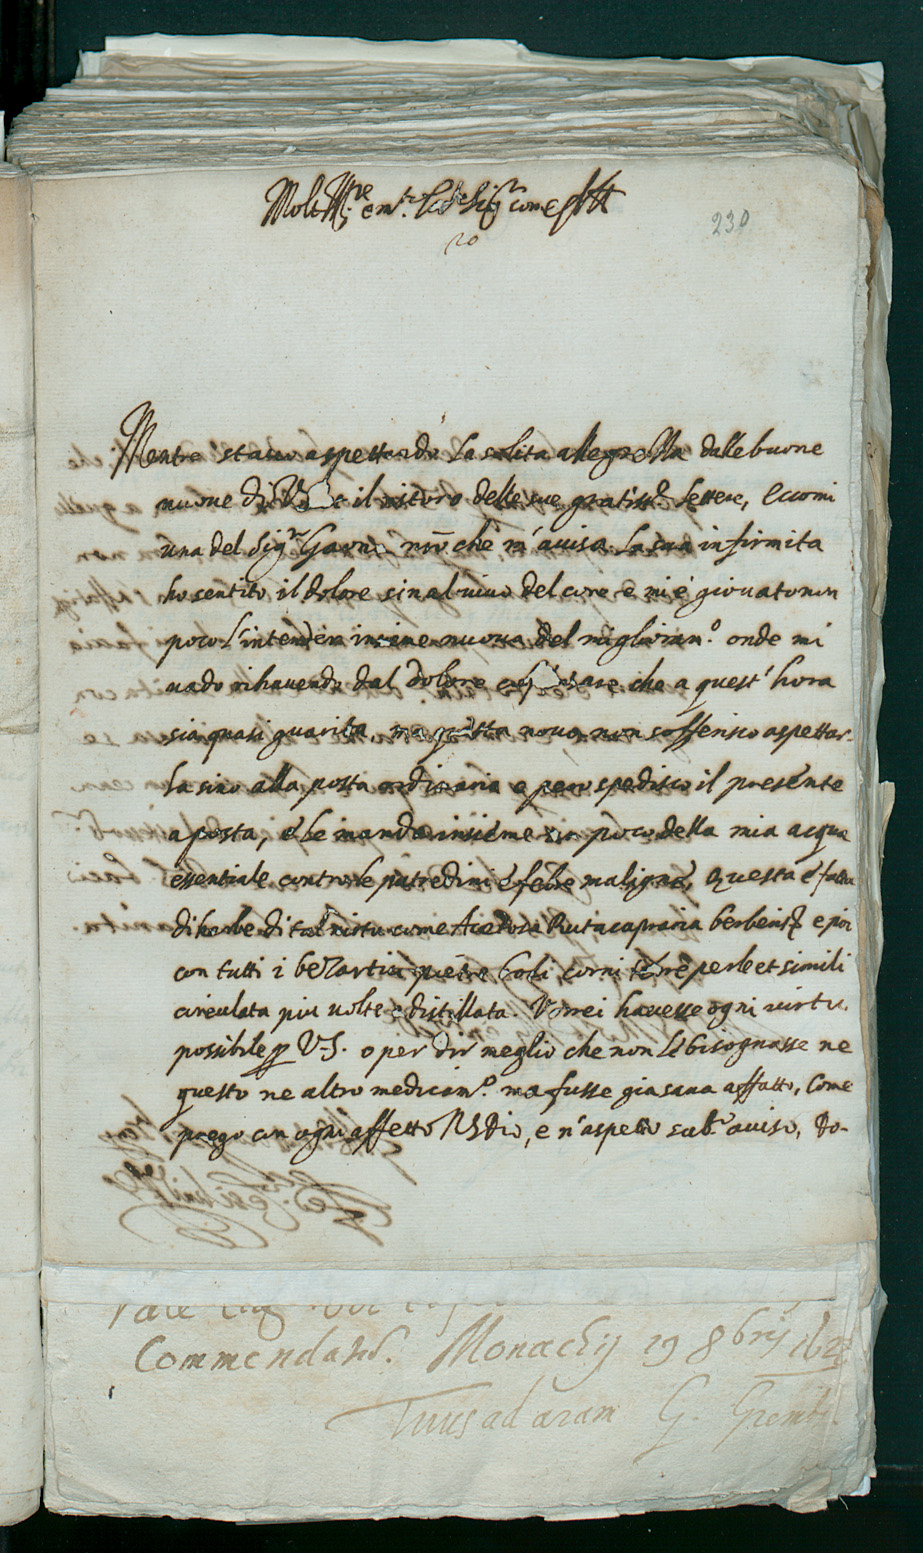 Molt Ill.re e m.to
230
20
Mentre stavo aspettando La solita allegrezza dalle buone
nuove di V.S. e il ristoro delle sue gratiss.e Lettere, Eccomi
una del Sig.r che m'avisa La sua infirmita
ho sentito il dolore sin al vivo del core e mi è giovato non
poco l'intender insieme nuova del miglioram.o onde mi
vado rihavendo dal dolore che a quest' hora
sia quasi guarita, ma nova non sofferisco aspettar-
La sino alla posta ordinaria e pero spedisco il presente
a posta, e Le mando insieme un poco della mia acqua
essentiale contro le putredini e febre maligne, Questa è fatta
di herbe di tal virtu come Acetosa Ruta capraria berberis e poi
con tutti i bezartici pietre corni terre perle et simili
circulata piu volte e distillata. Vorrei havesse ogni virtu
possibile p V.S. o per dir meglio che non Le bisognasse ne
questo ne altro medicam.o ma fusse gia sana affatto, Come
prego con ogni affetto Dio, e n'aspetto sub.o aviso, do-
Vale
Commendatis. Monachij 19 8bris
Tuus ad aram G.